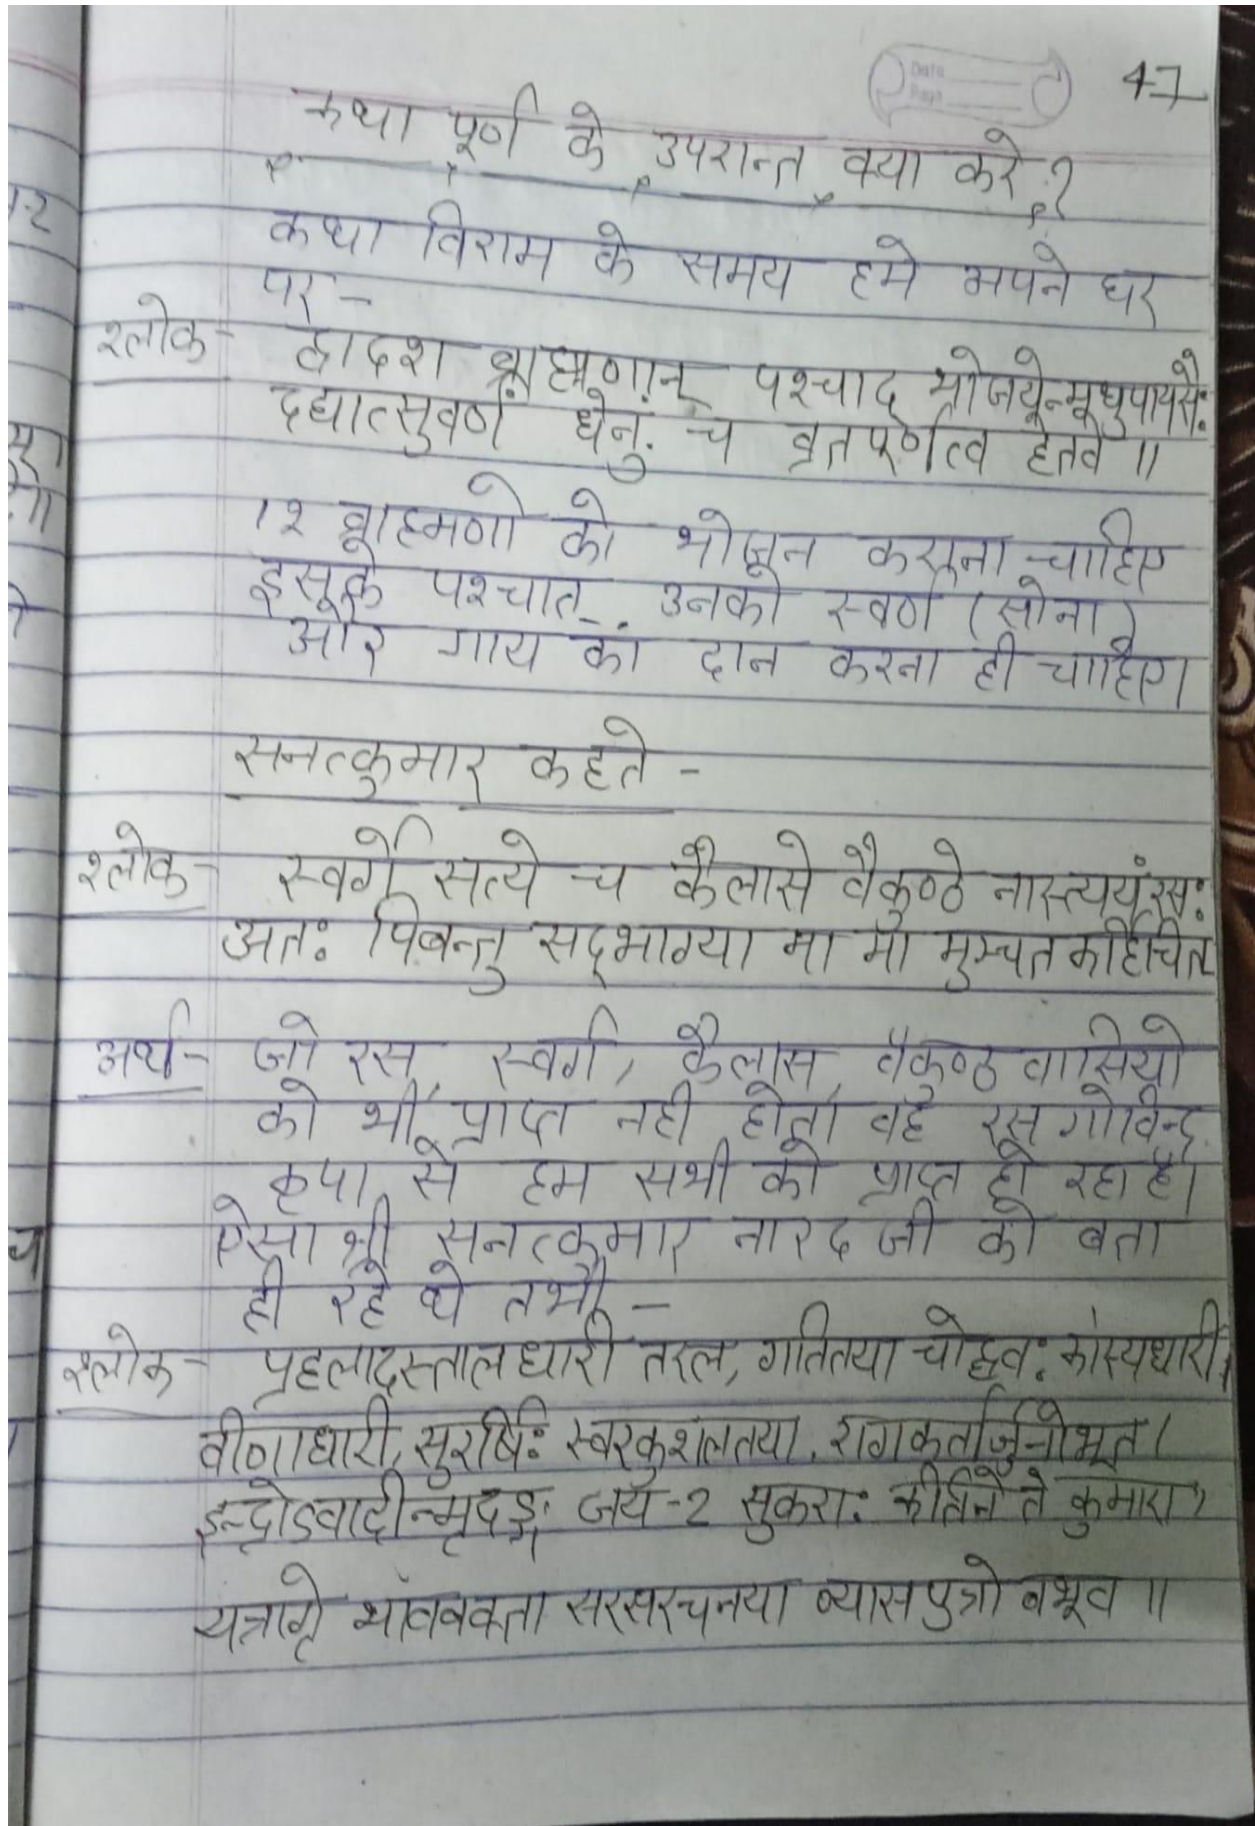 Date
Page
47
कथा पूर्ण के उपरान्त क्या करे ?
कथा विराम के समय हमे अपने घर
पर -
श्लोक - द्वादश ब्राह्मणान् पश्चाद् भोजयेन्मधुपायसै:
दद्यात्सुवर्णं धेनुं च व्रतपूर्णत्व हेतवे ॥
12 ब्राहमणो को भोजन कराना चाहिए
इसके पश्चात् उनको स्वर्ण (सोना)
और गाय का दान करना ही चाहिए।
सनत्कुमार कहते -
श्लोक - स्वर्गे सत्ये च कैलासे वैकुण्ठे नास्त्ययं रस:
अत: पिबन्तु सद्भाग्या मा मा मुम्चत कर्हिचित
अर्थ - जो रस, स्वर्ग, कैलास, वैकुण्ठ वासियो
को भी प्राप्त नही होता वह रस गोविन्द
कृपा से हम सभी को प्राप्त हो रहा है।
ऐसा श्री सनत्कुमार नारद जी को बता
ही रहे थे तभी -
श्लोक - प्रहलादस्तालधारी तरल, गतितया चोद्धव: कांस्यधारी,
वीणाधारी, सुरर्षि: स्वरकुशलतया, रागकर्तार्जुनोभूत।
इन्द्रोऽवादीन्मृदङ्गं जय-2 सुकरा: कीर्तने ते कुमारा,
यत्राग्रे भाववक्ता सरसरचनया व्यासपुत्रो बभूव ॥